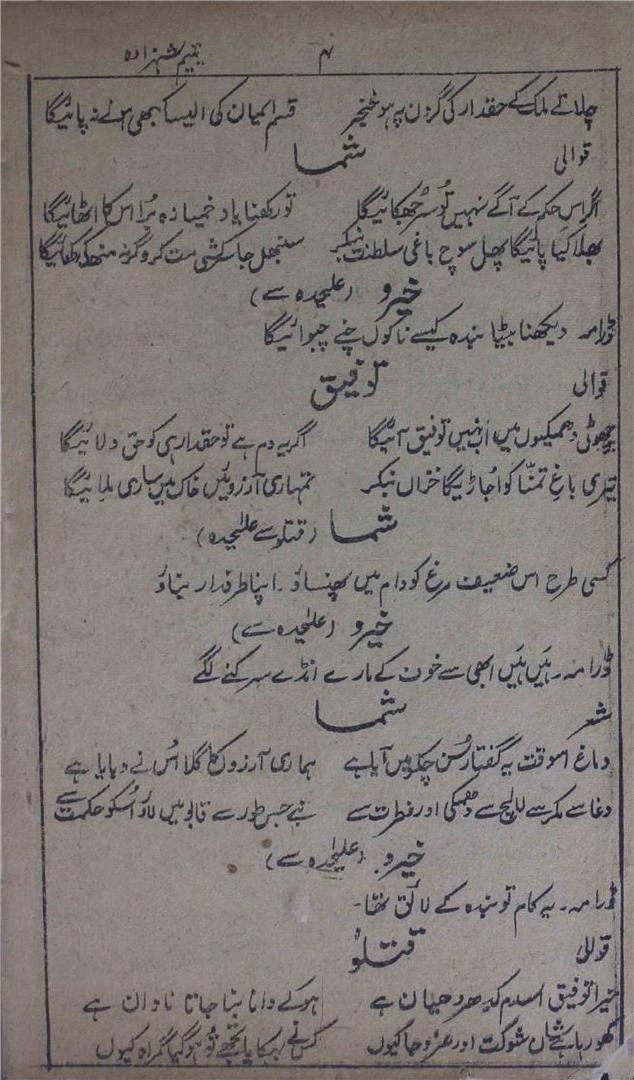 ۴ یتیم شہزادہ
چلائے ملک کے حقدار کی گردن پہ ہو خنجر قسم ایمان کی ایسا کبھی ہونے نہ پائیگا
قوالی شما
اگر اس حکم کے آگے نہیں تو سر جھکائیگا تو رکھنا یاد خمیازہ بُرا اس کا اٹھائیگا
بھلا کیا پائیگا پھل سوچ باغی سلطنت بنکر سنبھل جا سرکشی مت کر وگرنہ منھ کی کھائیگا
خیرو (علیحدہ سے)
ڈرامہ دیکھنا بیٹا بندہ کیسے ناکوں چنے چبوائیگا
قوالی توفیق
جھوٹی دھمکیوں میں اب نہیں توفیق آئیگا اگر یہ دم ہے تو حقدار ہی کو حق دلائیگا
تیری باغِ تمنّا کو اُجاڑیگا خزاں بنکر تمہاری آرزوئیں خاک میں ساری ملائیگا
شما (قتلو سے علیحدہ)
کسی طرح اس ضعیف مرغ کو دام میں پھنساؤ ۔ اپنا طرفدار بناؤ
خیرو (علیحدہ سے)
ڈرامہ ۔ ہَیں ہَیں ابھی سے خون کے مارے انڈے سرکنے لگے
شعر شما
دماغ اسوقت یہ گفتار سُن چکر میں آیا ہے ہماری آرزوں کا گلا اُس نے دبایا ہے
دغا سے مکر سے لالچ سے دھمکی اور فطرت سے بنے جس طور سے قابو میں لاؤ اُسکو حکمت سے
خیرو (علیحدہ سے)
ڈرامہ ۔ یہ کام تو بندہ کے لائق تھا ۔
قوالی قتلو
تیرا توفیق اسدم کدھر دھیان ہے ہو کے دانا بنا جاتا نادان ہے
کھو رہا ہے شاں شوکت اور عز و جا کیوں کس نے بہکایا تجھے تو ہو گیا گمراہ کیوں